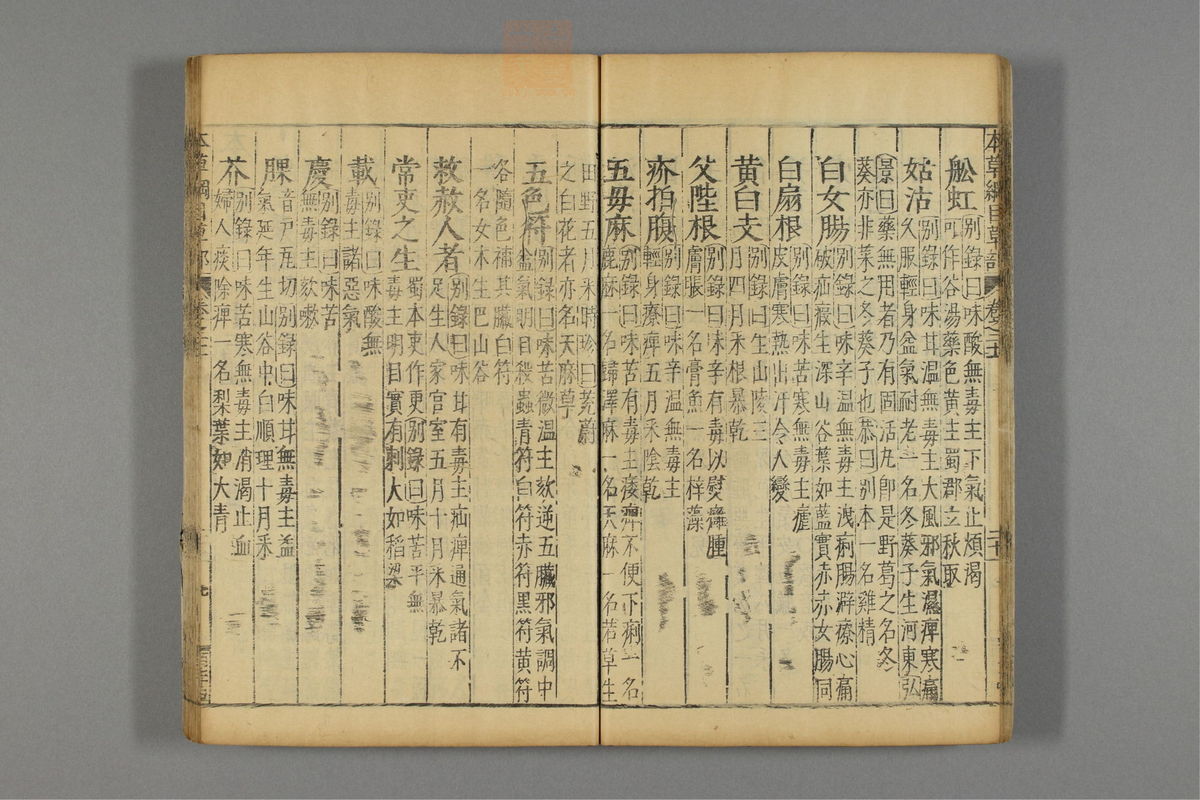 舩虹
別錄曰味酸無毒主下氣止煩渴
可作浴湯藥色黃主蜀郡立秋取
姑活
別錄曰味甘溫無毒主大風邪氣濕痺寒痛
久服輕身益氣耐老一名冬葵子生河東弘
景曰藥無用者乃有固活丸即是野葛之名冬
葵亦非菜之冬葵子也恭曰別本一名雞精
白女腸
別錄曰味辛溫無毒主洩痢腸澼療心痛
破疝瘕生深山谷葉如藍實赤赤女腸同
白扇根
別錄曰味苦寒無毒主瘧
皮膚寒熱出汗令人變
黃白支
別錄曰生山陵三
月四月采根暴乾
父陛根
別錄曰味辛有毒以熨癰腫
膚脹一名膏魚一名梓藻
疥拍腹
別錄曰味辛溫無毒主
輕身療痺五月采陰乾
五母麻
別錄曰味苦有毒主痿痺不便下痢一名
鹿麻一名歸澤麻一名天麻一名若草生
田野五月采時珍曰茺蔚
之白花者亦名天麻草
五色符
別錄曰味苦微溫主欬逆五臟邪氣調中
益氣明目殺蟲青符白符赤符黑符黃符
各隨色補其臟白符
一名女木生巴山谷
救赦人者
別錄曰味甘有毒主疝痺通氣諸不
足生人家宮室五月十月采暴乾
常吏之生
蜀本吏作更別錄曰味苦平無
毒主明目實有刺大如稻粱
載
別錄曰味酸無
毒主諸惡氣
慶
別錄曰味苦
無毒主欬嗽
腂
音戶瓦切別錄曰味甘無毒主益
氣延年生山谷中白順理十月采
芥
別錄曰味苦寒無毒主消渴止血
婦人疾除痺一名梨葉如大青